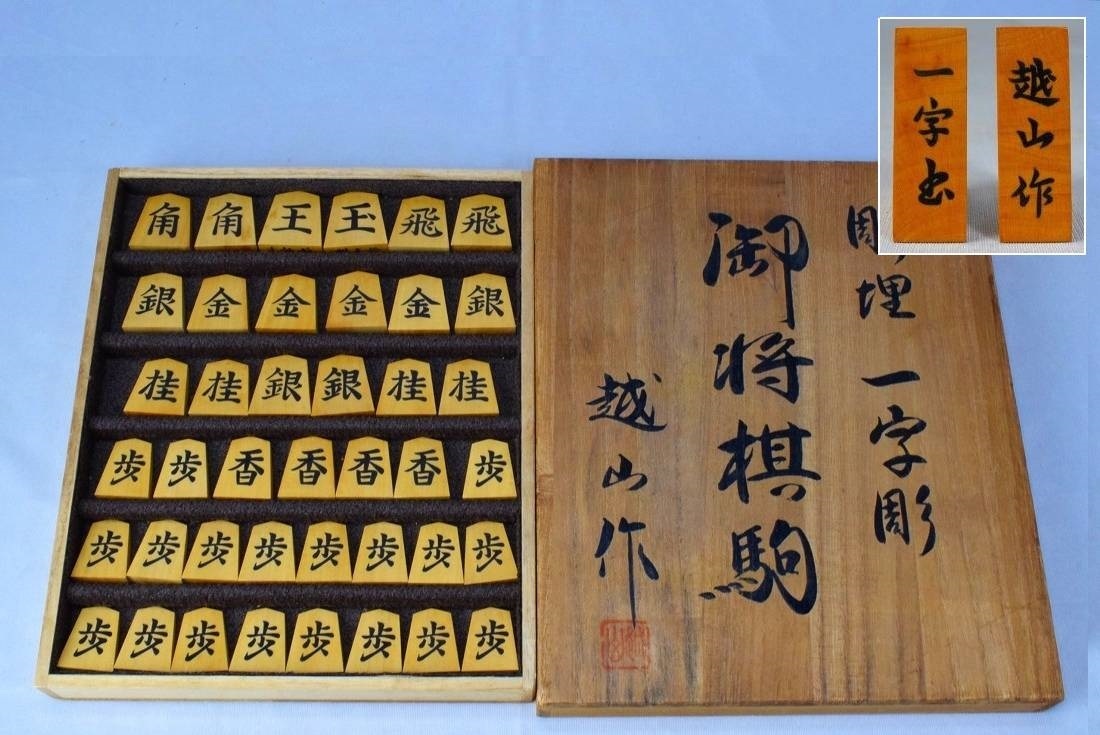 角 角 王 玉 飛 飛
銀 金 金 金 金 銀
桂 桂 銀 銀 桂 桂
歩 歩 香 香 香 香 歩
歩 歩 歩 歩 歩 歩 歩 歩
歩 歩 歩 歩 歩 歩 歩 歩
彫埋 一字彫
御将棋駒
越山作
越山作
一字書